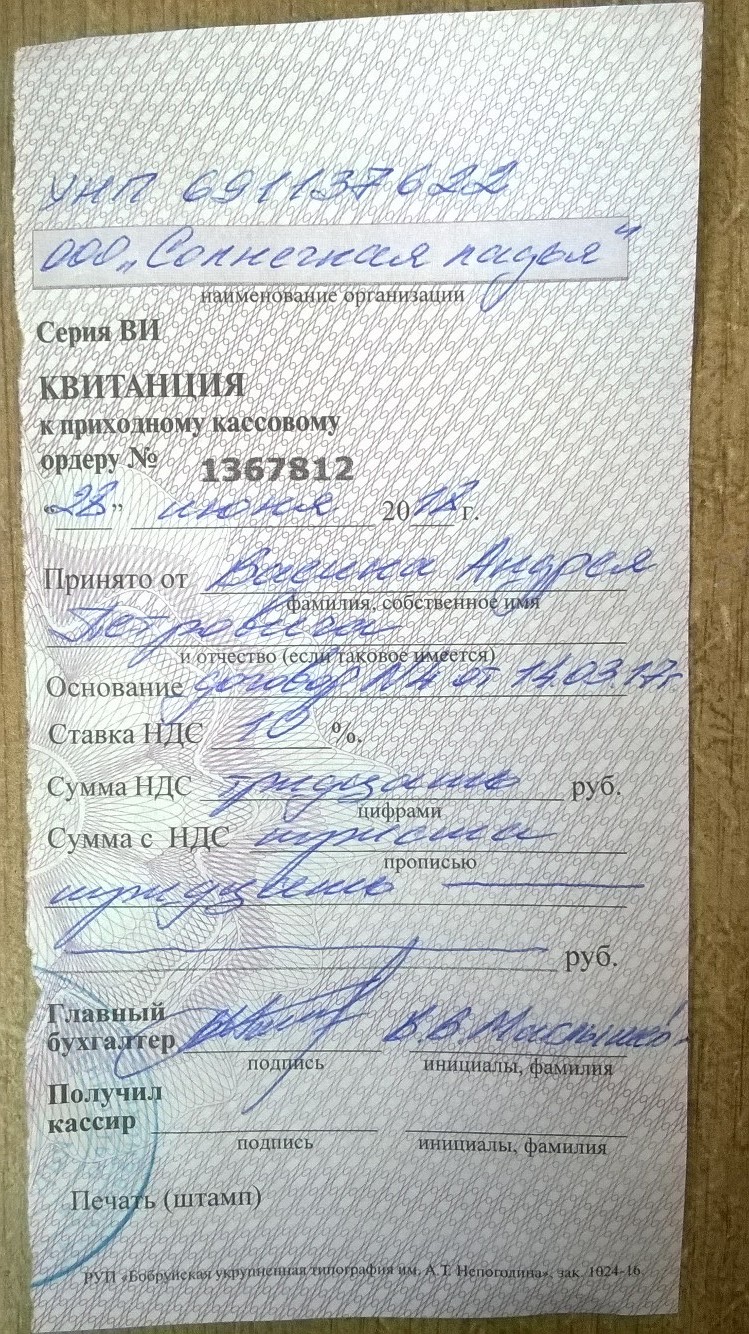 УНП 691137622
ООО „Солнечная падья"
наименование организации
Серия ВИ
КВИТАНЦИЯ
к приходному кассовому
ордеру № 1367812
«28» июня 2018 г.
Принято от Васина Андрея
фамилия, собственное имя
Петровича
и отчество (если таковое имеется)
Основание договор №4 от 14.03.17г.
Ставка НДС 10 %.
Сумма НДС тридцать руб.
цифрами
Сумма с НДС триста
прописью
тридцать
руб.
Главный
бухгалтер В.В.
подпись инициалы, фамилия
Получил
кассир
подпись инициалы, фамилия
Печать (штамп)
РУП «Бобруйская укрупненная типография им. А.Т. Непогодина», зак. 1024-16.